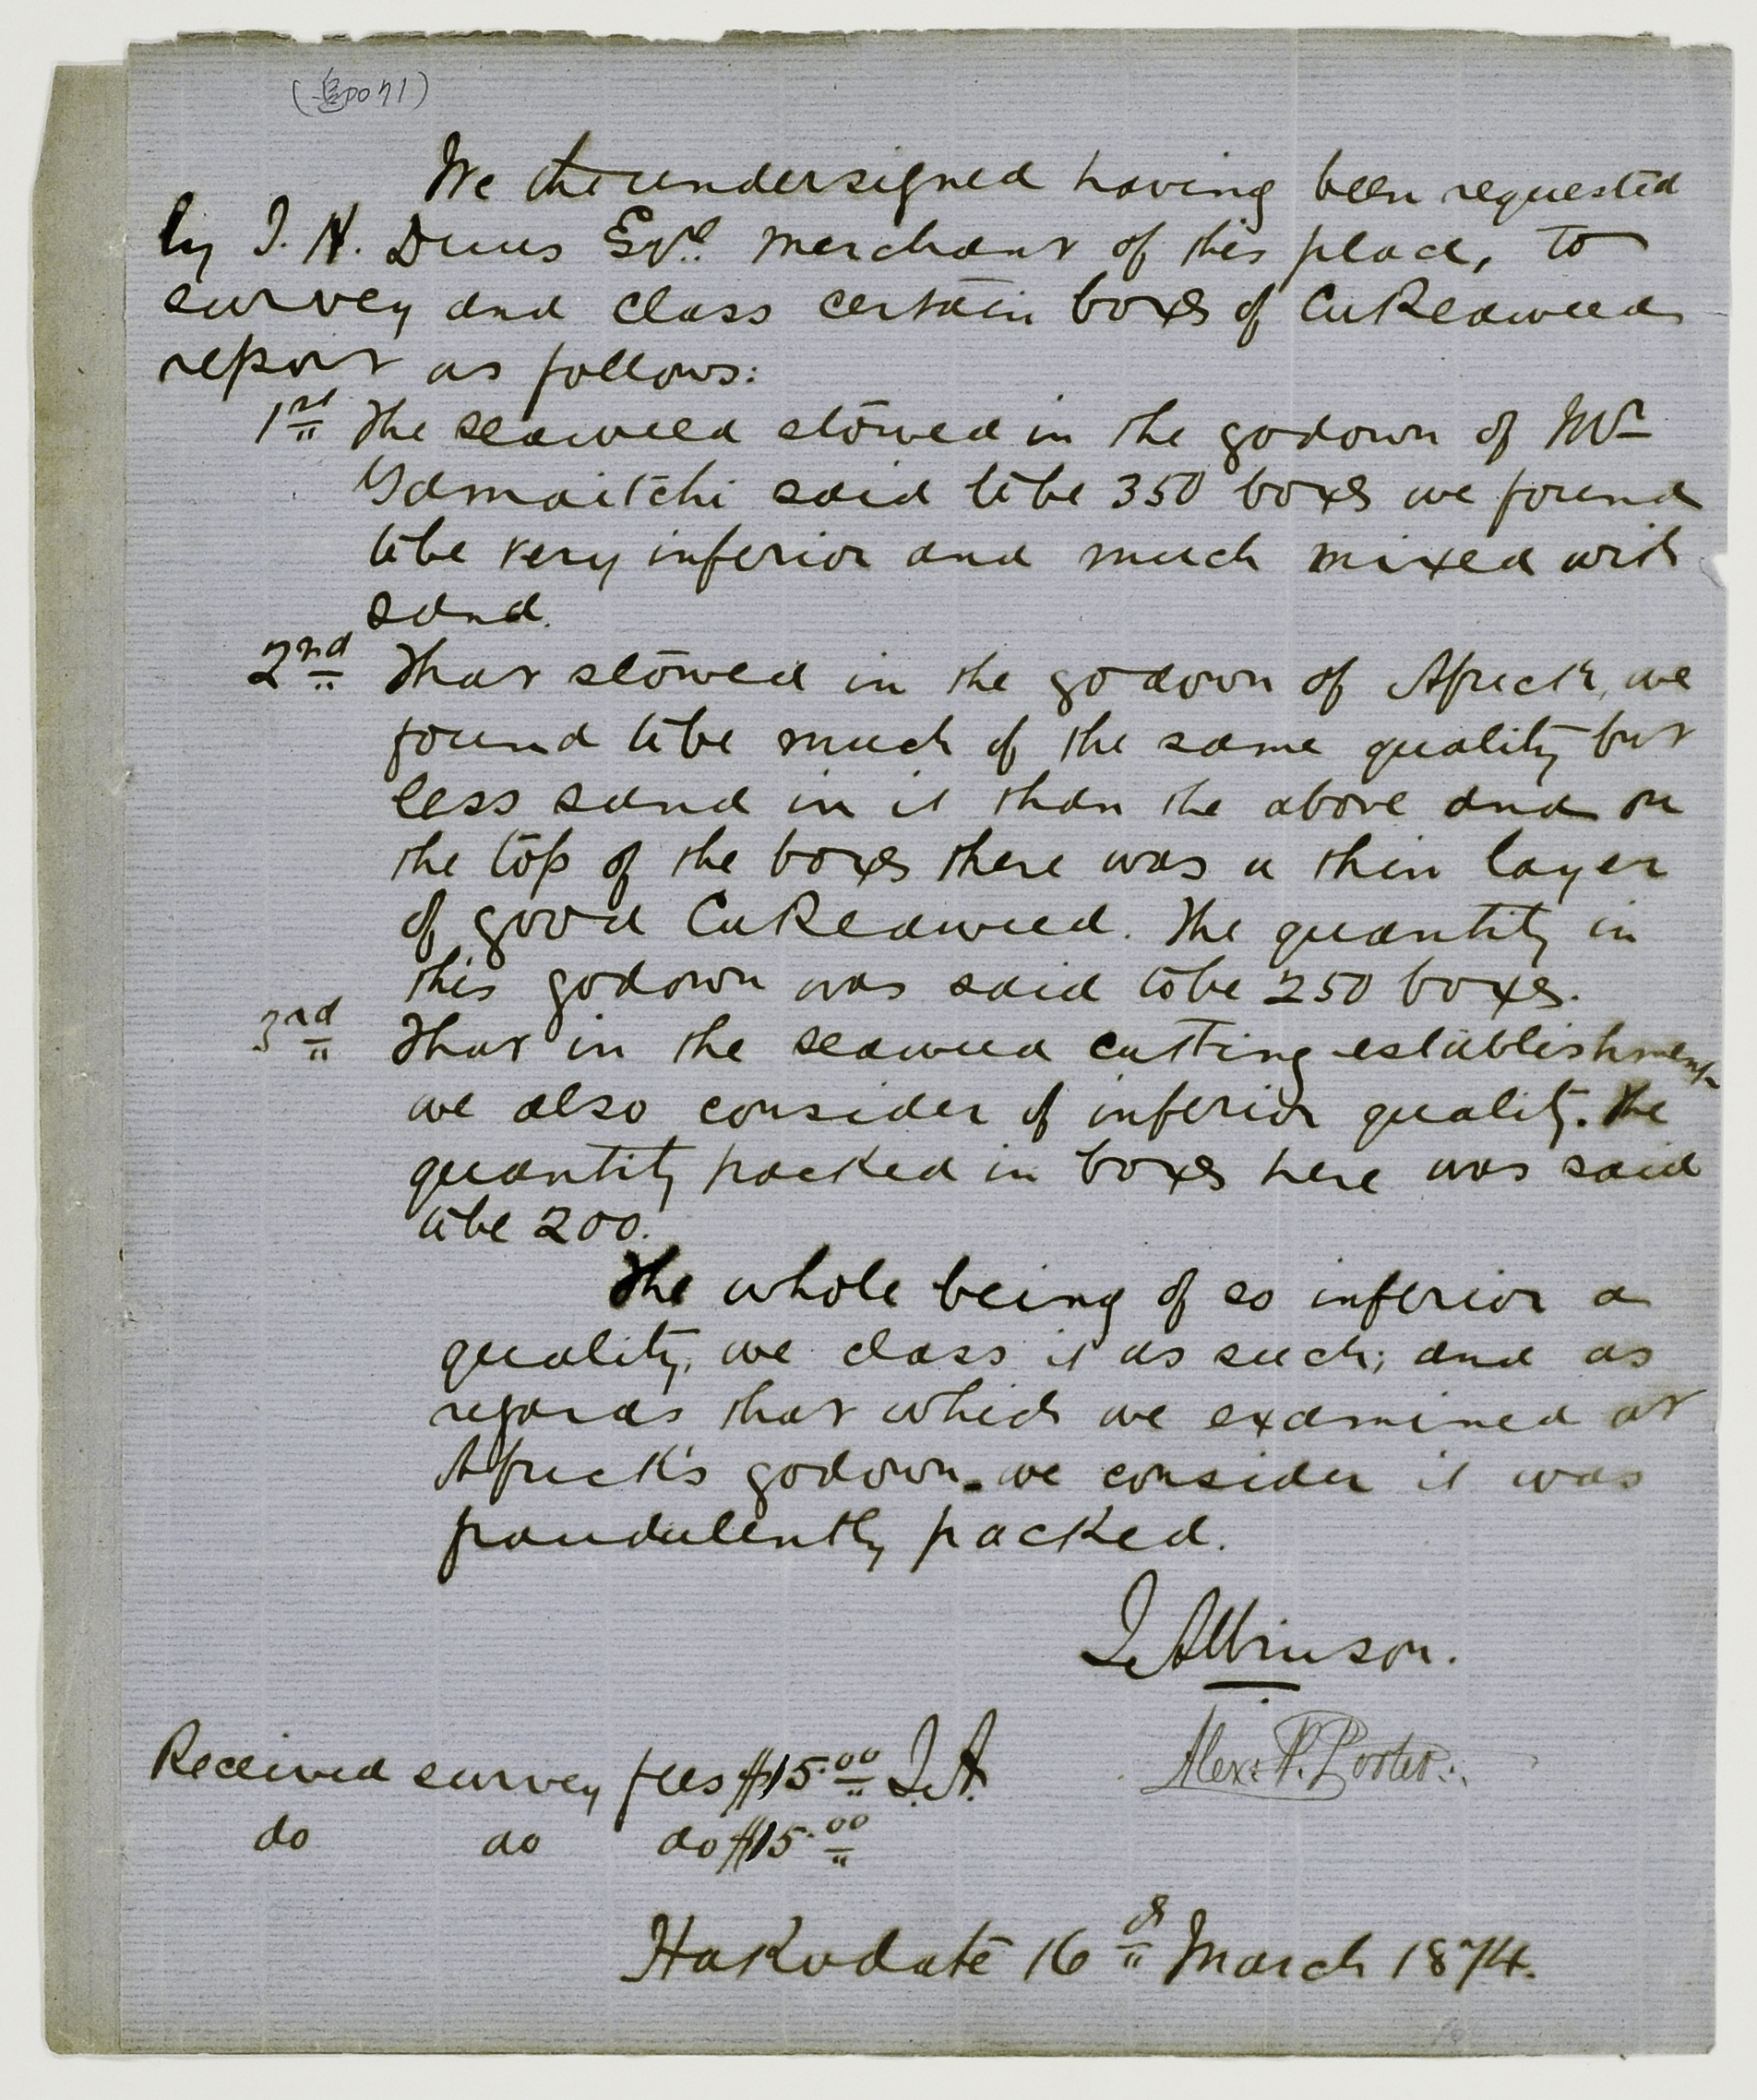 We the undersigned having been requested
by J. H. Duus Esqre. merchant of this place, to
survey and class certain boxes of CutSeaweed
report as follows:
1st The seaweed stowed in the godown of Mr
Yamaitchi said to be 350 boxes we found
to be very inferior and much mixed with
sand.
2nd That stowed in the godown of Afuck, we
found to be much of the same quality but
less sand in it than the above and on
the top of the boxes there was a thin layer
of good CutSeaweed. The quantity in
this godown was said to be 250 boxes.
3rd That in the seaweed cutting establishment
we also consider of inferior quality. The
quantity packed in boxes here was said
to be 200.
The whole being of so inferior a
quality, we class it as such; and as
regards that which we examined at
Afuck's godown we consider it was
fraudulently packed.
Alex: P. Porter
Received survey fees $15.00 J.A.
do do do $15.00
Hakodate 16th March 1874.